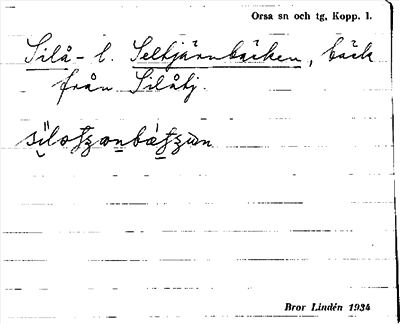 Orsa sn och tg, Kopp. l.
Silå- l. Seltjärnbäcken, bäck
från Silåtj.
Bror Lindén 1934